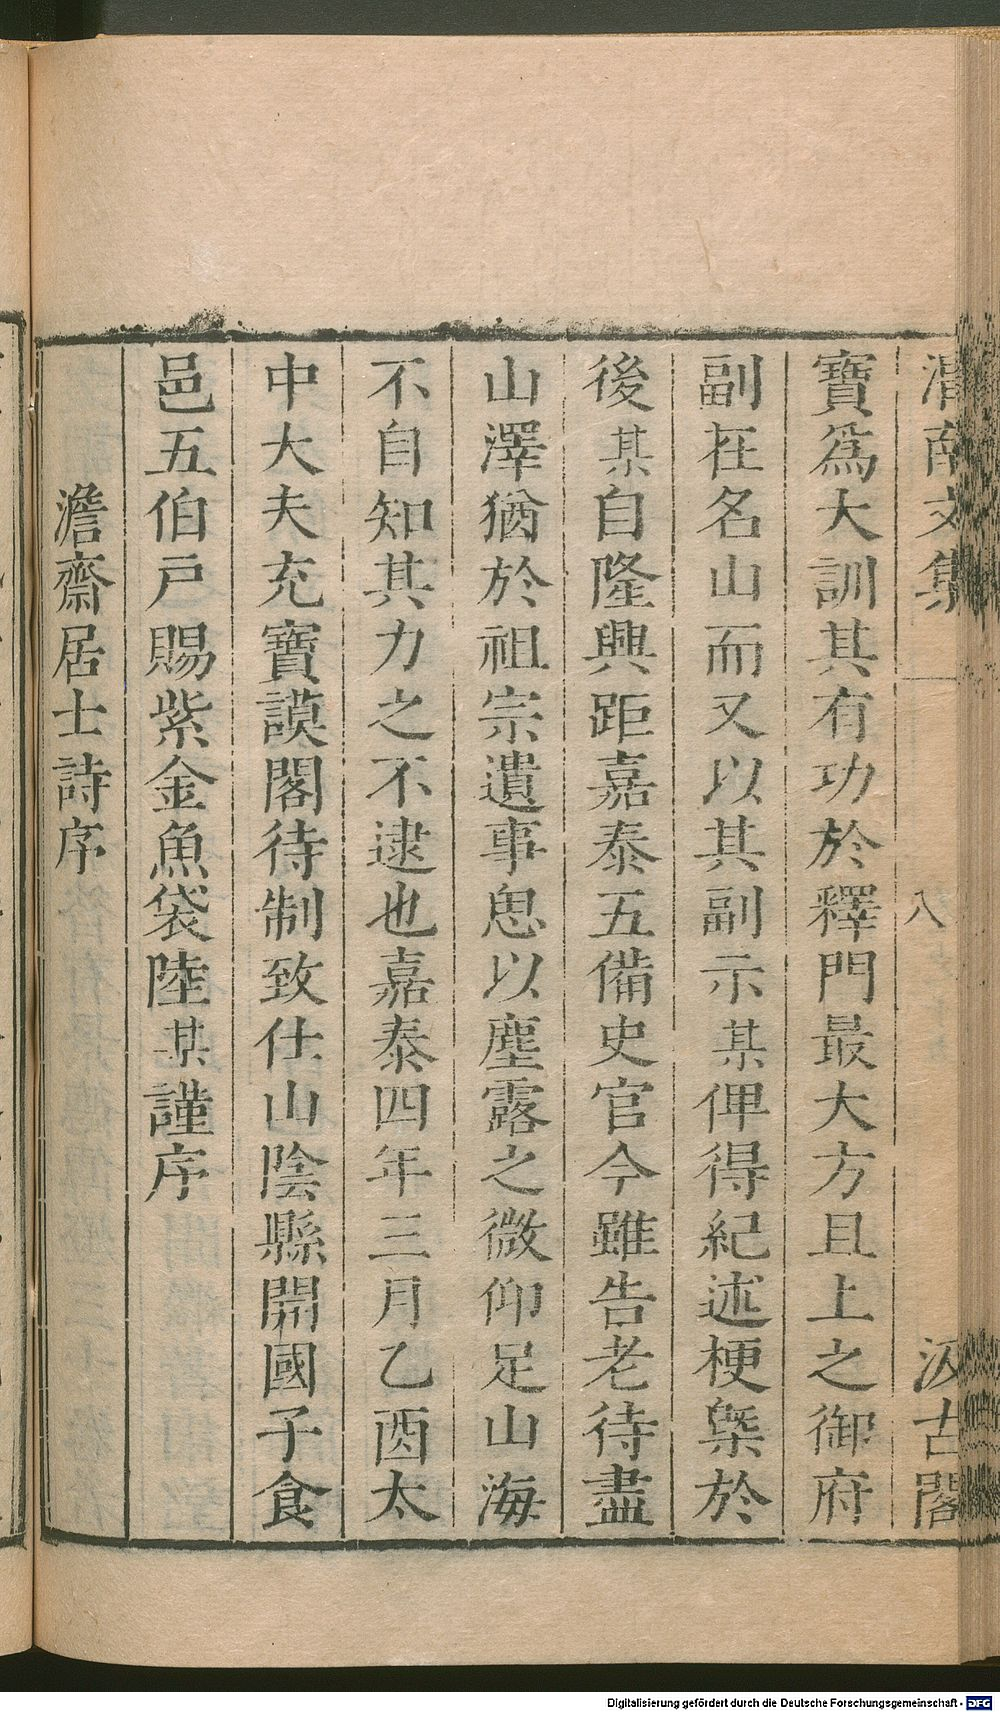 渭南文集 八 汲古閣
寶爲大訓其有功於釋門最大方且上之御府
副在名山而又以其副示某俾得紀述梗槩於
後某自隆興距嘉泰五備史官今雖告老待盡
山澤猶於祖宗遺事思以塵露之微仰足山海
不自知其力之不逮也嘉泰四年三月乙酉太
中大夫充寶謨閣待制致仕山陰縣開國子食
邑五伯戶賜紫金魚袋陸某謹序
澹齋居士詩序
Digitalisierung gefördert durch die Deutsche Forschungsgemeinschaft - DFG